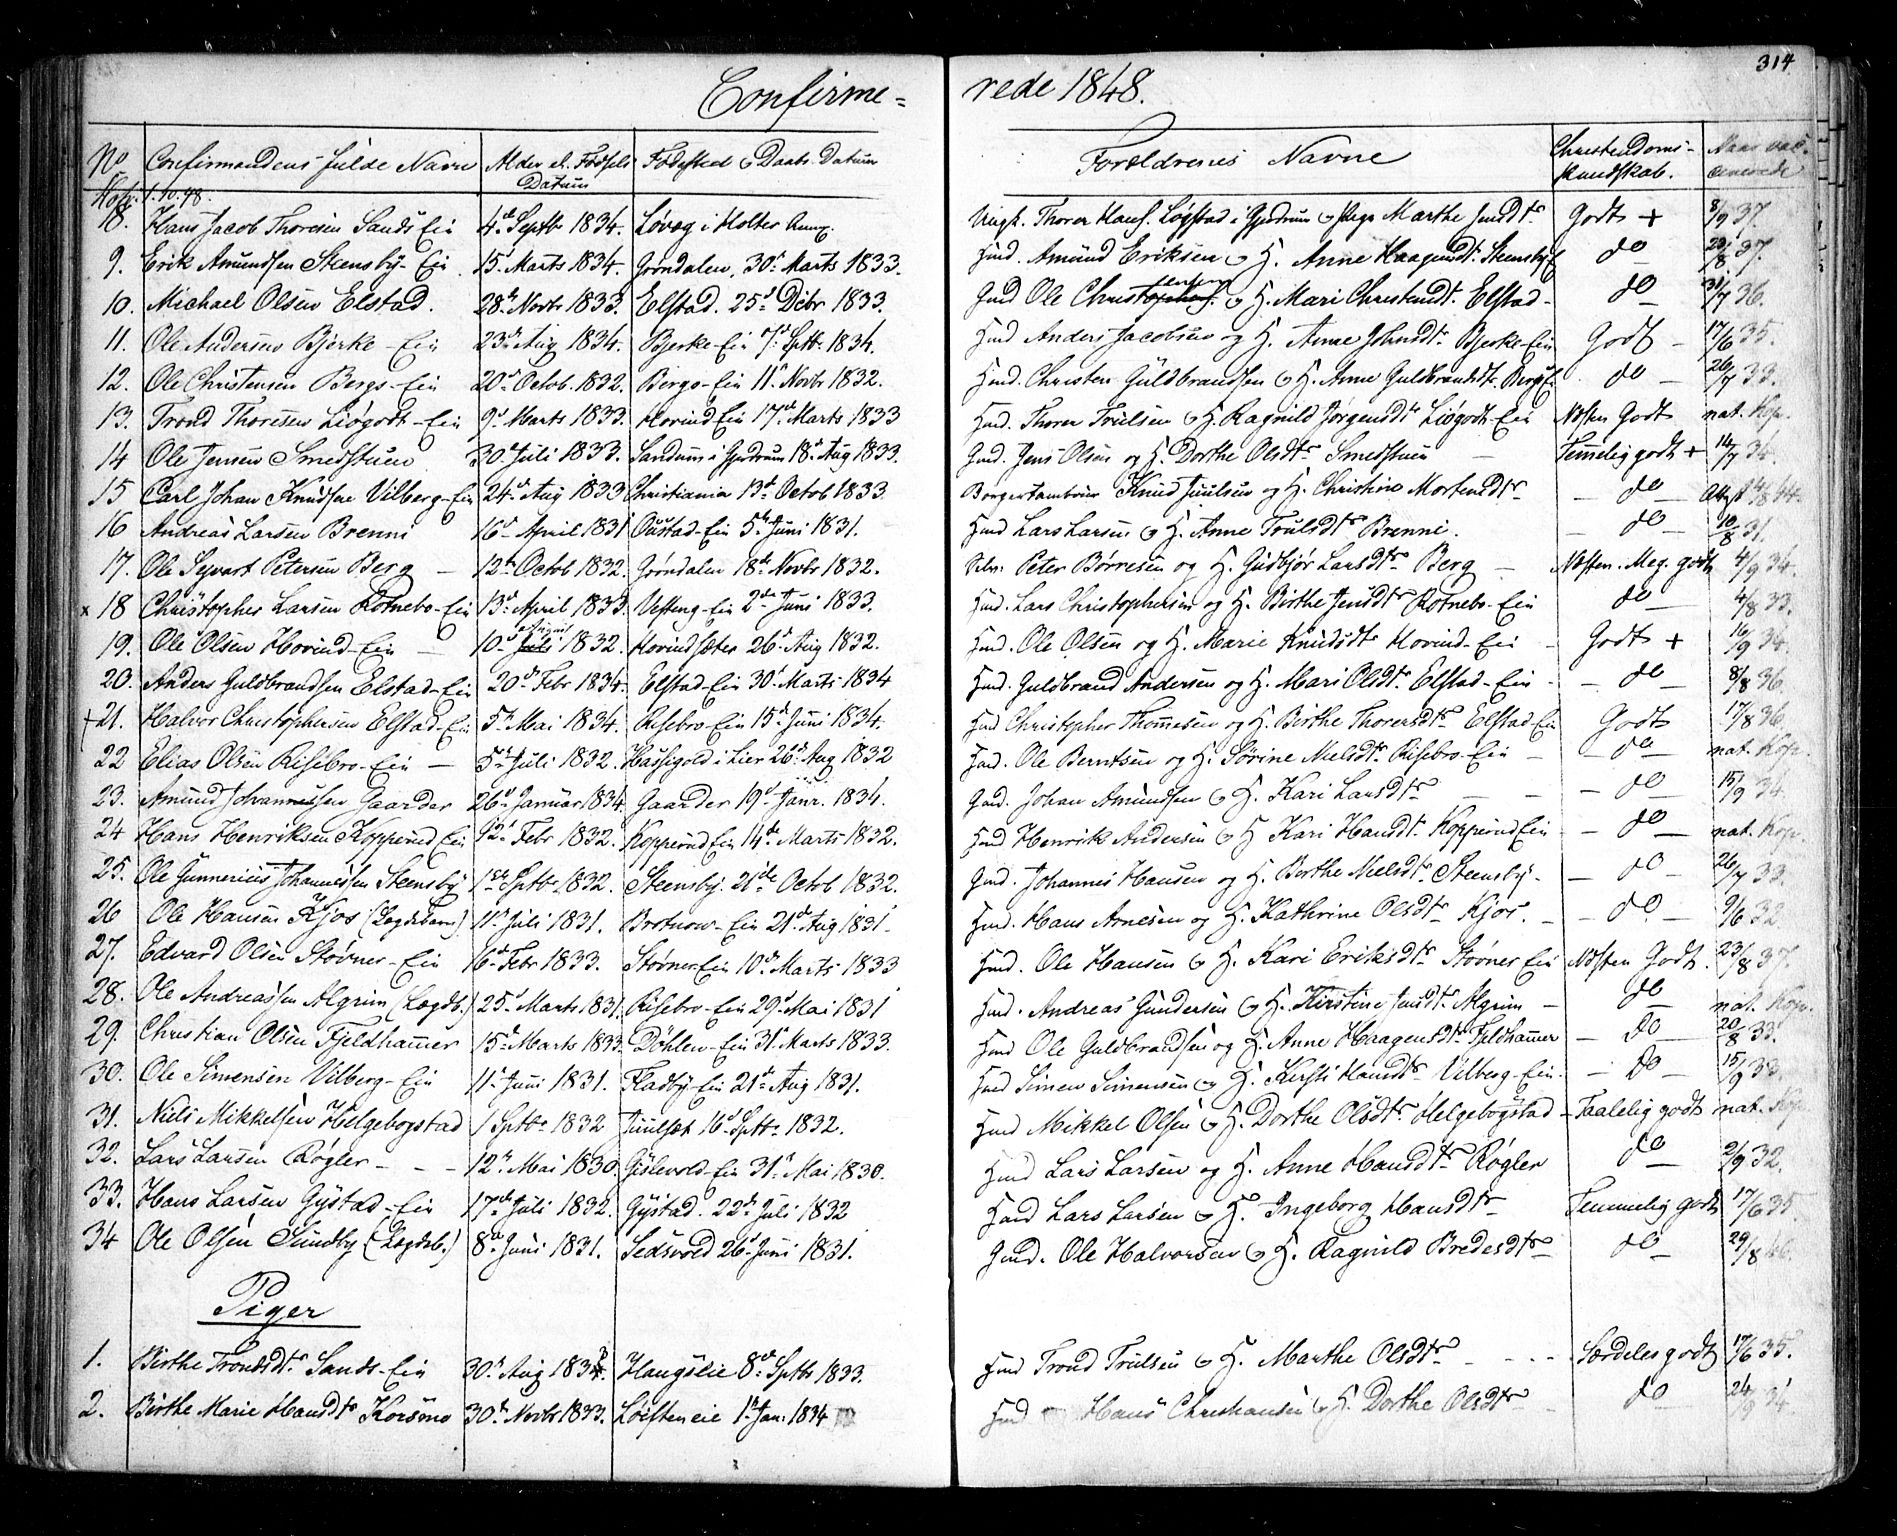 314
Confirme= rede 1848.
No Confirmandens fulde Navn Alder el. Fødsels Datum Fødested o Daabs Datum Forældrenes Navne Christendoms-kundskab. Naar vaccinerede
1.10.48.
18. Hans Jacob Thoresen Sands Ein 4de Septbr 1834. Løvæg i Holter Anneg. Ungk. Thorer Hans. Løgstad i Gjerdrum o Pige Marthe Jensdtr Godt + 8/9 37.
9. Erik Amundsen Steensby-Ein 15. Marts 1834. Grøndalen, 30t Marts 1833. Huusmd. Amund Eriksen o H. Anne Haagensdt. Steensby E do 20/8 37.
10. Michael Olsen Elstad. 28de Novbr 1833. Elstad. 25d Dcbr 1833. Gmd Ole Christensen o H. Mari Christensdt. Elstad - do 31/7 36.
11. Ole Andersen Bjerke-Ein 23de Aug 1834. Bjerke-Ein 7d Sptbr 1834. Hmd Anders Jacobsen og H. Anne Johnsdt. Bjerke-Ein Godt - 17/6 35.
12. Ole Christensen Bergs-Ein 20d Octob. 1832. Bergs-Ein 11t Novbr 1832. Hmd. Christen Guldbrandsen o H. Anne Guldbrandsdtr Bergs E. do - 26/7 33.
13. Trond Thoresen Liøgodt-Ein 9d Marts 1833. Hovind Ein 17de Marts 1833 Hmd. Thorer Trulsen o H. Ragnild Jørgensdtr Liøgodt-Ein Næsten Godt nat. Kop.
14 Ole Jensen Smedstuen 30. Juli 1833. Sandum i Gjerdrum 18d Aug 1833. Gmd. Jens Olsen og H. Dorthe Olsdtr Smedstuen - Temmelig godt + 14/7 34.
15 Carl Johan Knudsen Vilberg-Ein 24de Aug 1833 Christiania 13d Octob 1833 Borgertambour Knud Juulsen og H. Christine Mortensdtr - do - Attest 4/8 44.
16 Andreas Larsen Brenni 16d April 1831 Oustad-Ein 5te Juni 1831. Hmd Lars Larsen o H. Anne Trulsdtr Brenni. - do - 10/8 31.
17. Ole Syvart Petersen Berg - 12te Octob 1832. Grøndalen 18de Novbr 1832. Peter Børresen og H. Gudbjør Larsdtr Berg - Næsten Meg. godt 4/9 34.
x 18 Christopher Larsen Rotnebo-Ein 13d April 1833. Vesteng-Ein 2de Juni 1833. Hmd. Lars Christophersen og H. Birthe Jensdtr Rotnebo-Ein do 4/8 33.
19. Ole Olsen Hovind-Ein - 10d August 1832. Hovindsæter 26d Aug 1832. Hmd. Ole Olsen og H. Marie Knudsdtr Hovind-Ein - Godt + 16/9 34.
20. Anders Guldbrandsen Elstad-Ein 20de Febr 1834. Elstad-Ein 30t Marts 1834 Hmd. Guldbrand Andersen og H. Mari Olsdt. Elstad-Ein - - do - 8/8 36
+21. Halvor Christophersen Elstad-Ein 5te Mai 1834. Risebro-Ein 15de Juni 1834. Hmd Christopher Thomesen og H. Birthe Thorersdtr Elstad-Ein Godt 17/8 36.
22 Elias Olsen Risebro-Ein - 5te Juli 1832. Hassigold i Lier 26de Aug 1832 Hmd. Ole Berntsen og H. Sørine Nielsdtr Risebro-Ein - - do - nat. Kop.
23. Amund Johannessen Gaarder 26d Januar 1834. Gaarder 19d Janr. 1834. Gmd. Johan Amundsen o H. Kari Larsdtr - - - do 15/9 34
24 Hans Henriksen Kopperud Ein 12t Febr 1832. Kopperud Ein 14de Marts 1832. Hmd Henrik Andersen o H Kari Hansdt. Kopperud Ein - do - nat. Kop.
25. Ole Gunnerius Johannessen Steensby 1ste Sptbr 1832. Steensby. 21de Octob 1832. Gmd. Johannes Hansen og H. Berthe Nielsdt. Steensby - - do - 26/7 33.
26 Ole Hansen Kjos (Lægdebarn) 11t Juli 1831. Brotnow-Ein 21de Aug 1831. Hmd. Hans Arnesen og H. Kathrine Olsdtr Kjos. - - do. - 9/6 32
27. Edvard Olsen Støvner-Ein 16d Febr 1833. Støvner Ein 10de Marts 1833 Hmd. Ole Hansen o H. Kari Eriksdtr Støvner Ein Næsten Godt. 23/8 37.
28. Ole Andreassen Algrim (Lægdb.) 25d Marts 1831. Risebro-Ein 29d Mai 1831 Hmd. Andreas Gundersen o H. Kirstine Jensdt. Algrim - do nat. Kop.
29. Christian Olsen Fjeldhamer 15de Marts 1833. Døhlen-Ein 31t Marts 1833. Hmd Ole Guldbrandsen og H. Anne Haagensdtr Fjeldhamer - do - 20/8 33.
30. Ole Simensen Vilberg-Ein 11t Juni 1831. Fladby-Ein 21de Aug 1831. Hmd Simen Simensen og H. Kirsti Hansdtr Vilberg-Ein. - do - 15/9 33.
31. Niels Mikkelsen Helgebogstad 1 Sptbr 1832 Juulset 16d Sptbr 1832. Hmd Mikkel Olsen o H. Dorthe Olsdtr Helgebogstad - Taalelig godt nat. Kop
32. Lars Larsen Røgler - - - 12te Mai 1830. Gislevold-Ein 31t Mai 1830. Hmd Lars Larsen og H. Anne Hansdtr Røgler do 2/9 32.
33. Hans Larsen Gystad-Ein 17de Juli 1832. Gystad. 22de Juli 1832 Hmd Lars Larsen o H. Ingeborg Hansdtr Temmelig godt 17/6 35.
34 Ole Olsen Sundby (Lægdeb.) 8de Juni 1831. Sedsvold 26d Juni 1831. Gmd. Ole Halvorsen o H. Ragnild Bredesdtr do 29/8 46.
Piger
1. Birthe Trondsdtr Sands-Ein 30te Aug 1833. Haugslie 8de Sptbr 1833. Hmd Trond Trulsen o H. Marthe Olsdtr - - - Særdeles godt 17/6 35.
2. Birthe Marie Hansdtr Korsmo 30te Novbr 1833. Løeften eie 1t Jan. 1834 Hmd Hans Christiansen o H. Dorthe Olsdtr - do 24/9 34